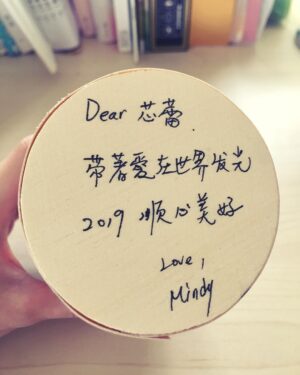 Dear 芯蕾
带著愛在世界发光
2019 顺心美好
Love,
Mindy